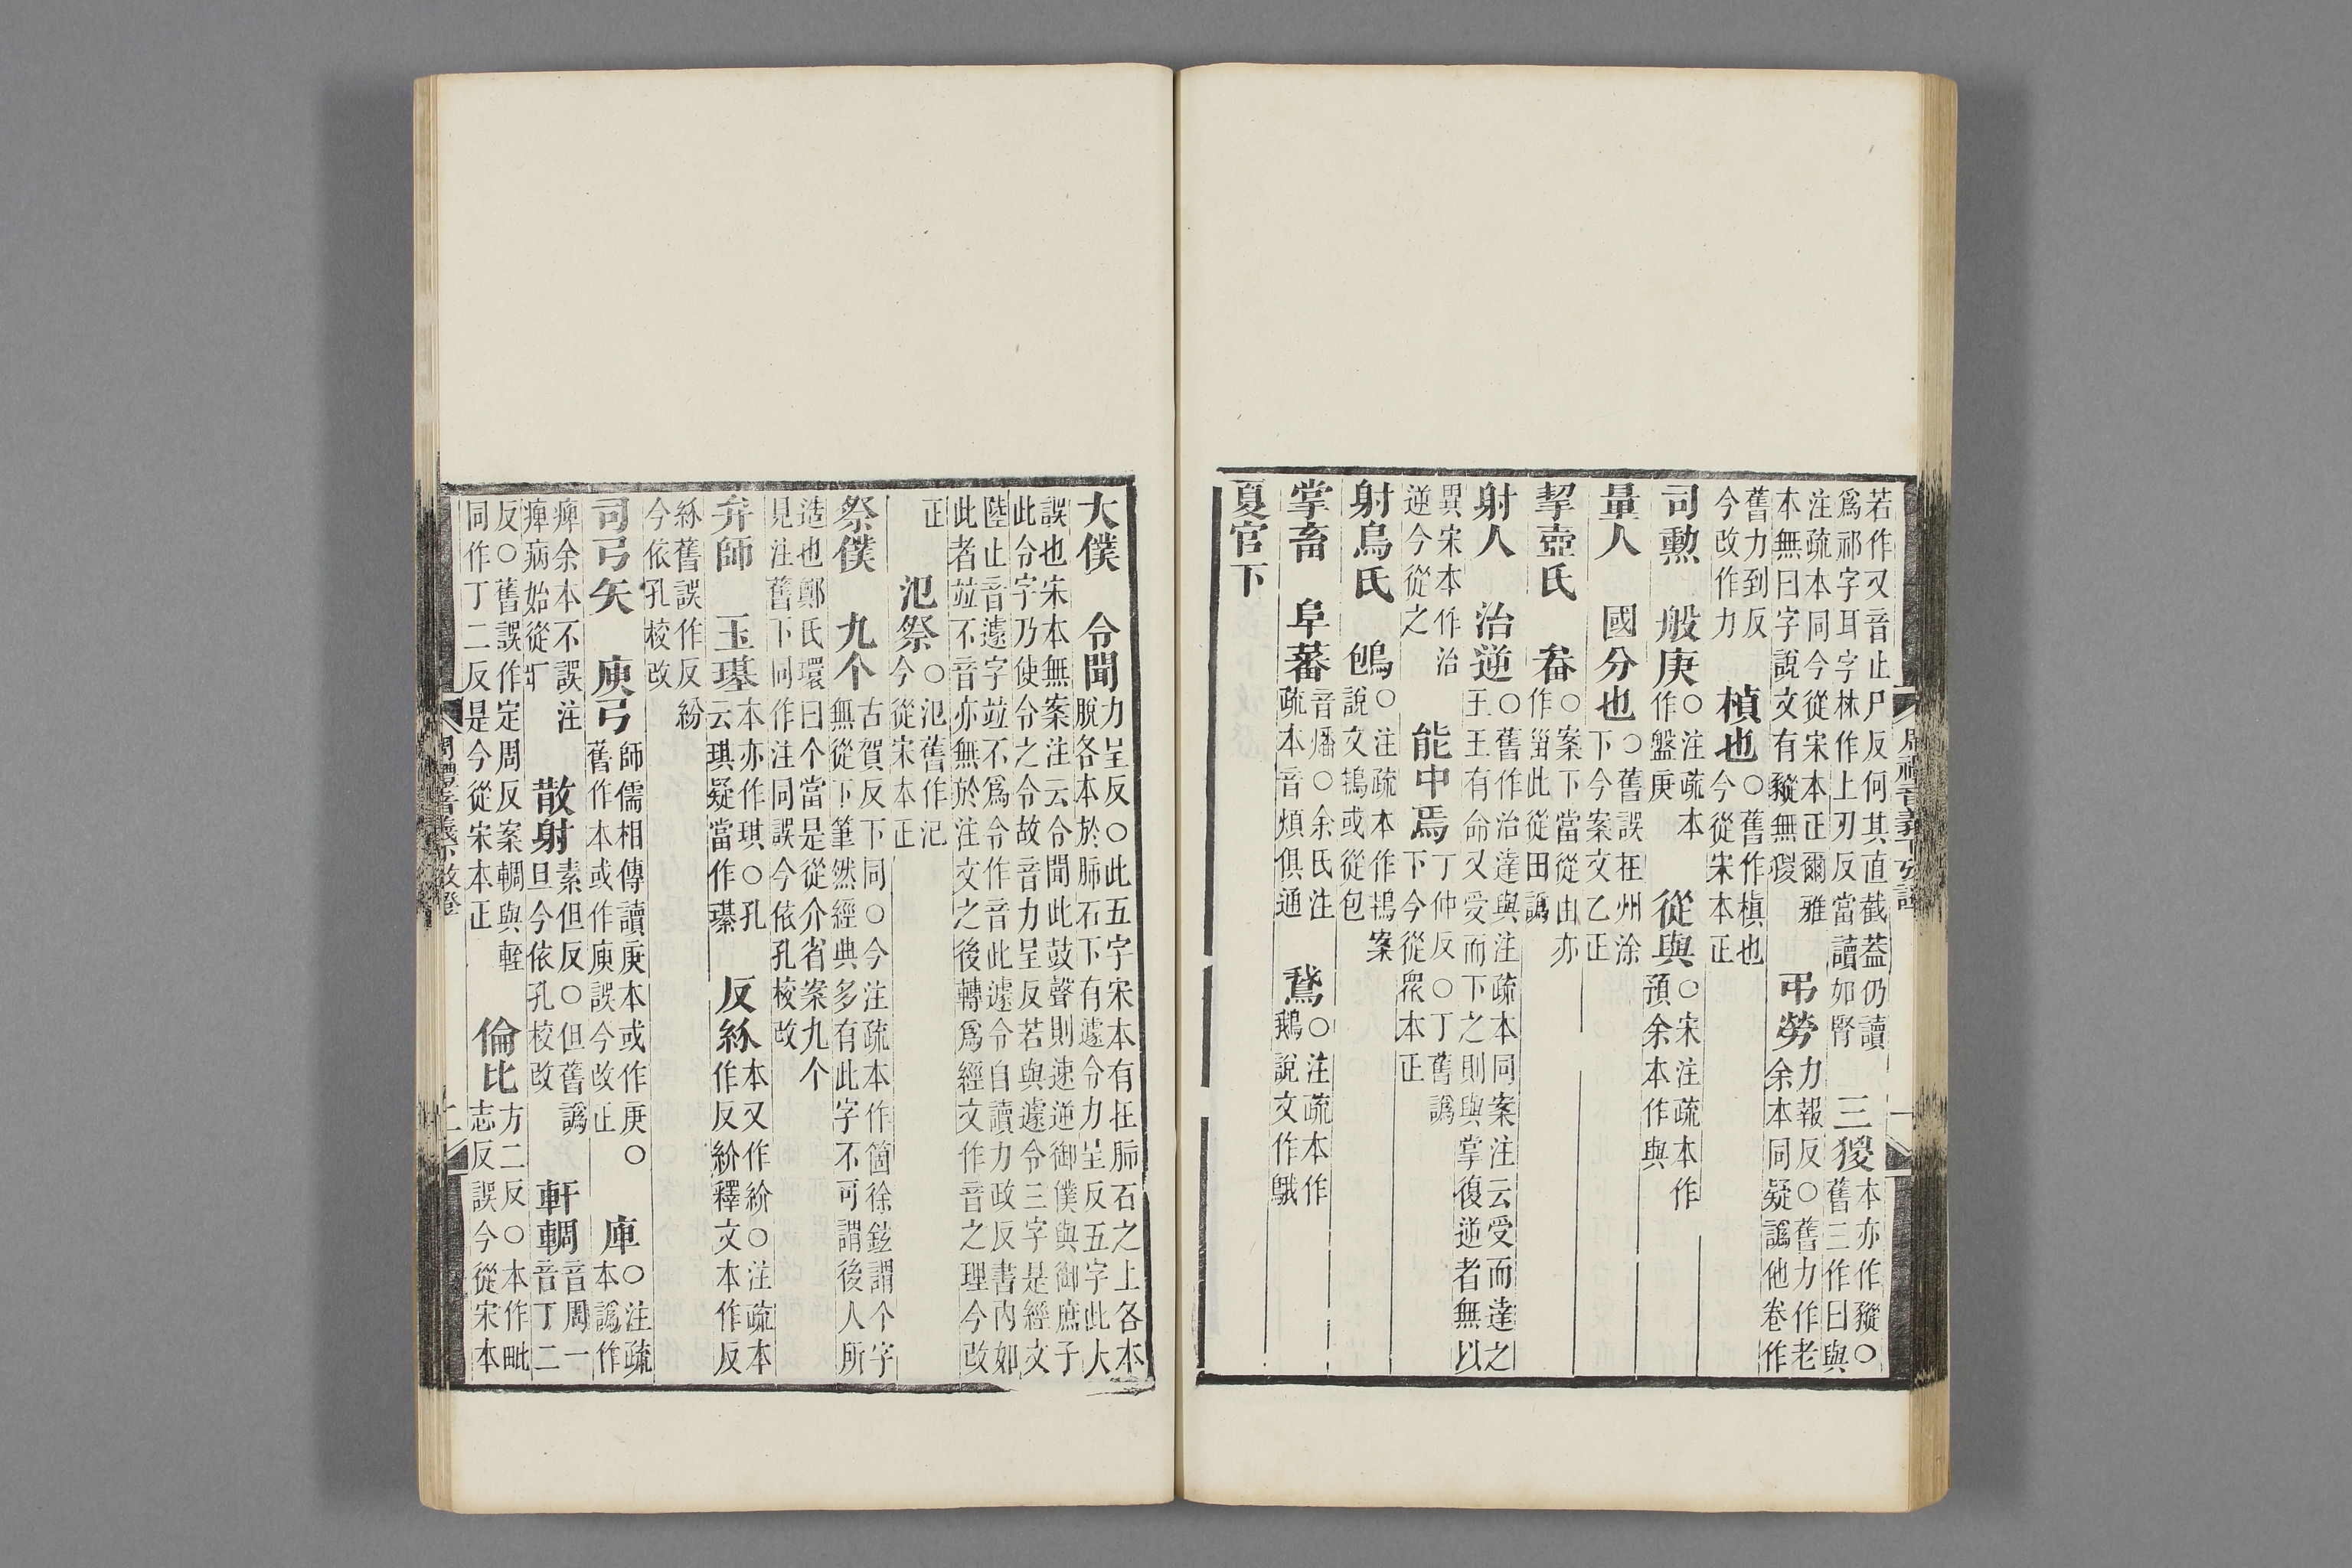 若作又音止尸反何其直截蓋仍讀
爲祁字耳字林作上刃反當讀如腎
三猣
本亦作豵○
舊三作曰與
注疏本同今從宋本正爾雅
本無曰字說文有豵無猣
弔勞
力報反○舊力作老
余本同疑譌他卷作
舊力到反
今改作力
楨也
○舊作槙也
今從宋本正
司勳　般庚
○注疏本
作盤庚
從與
○宋注疏本作
預余本作與
量人　國分也
○舊誤在州涂
下今案文乙正
挈壺氏　畚
○案下當從由亦
作甾此從田譌
射人　治逆
○舊作治達與注疏本同案注云受而達之
王王有命又受而下之則與掌復逆者無以
異宋本作治
逆今從之
能中焉
丁仲反○丁舊譌
下今從衆本正
射鳥氏　䳈
○注疏本作鴇案
說文鴇或從包
掌畜　阜蕃
音燔○余氏注
疏本音煩俱通
鵞
○注疏本作
鵝說文作䳘
夏官下
大僕　令聞
力呈反○此五字宋本有在肺石之上各本
脫各本於肺石下有遽令力呈反五字此大
誤也宋本無案注云令聞此鼓聲則速逆御僕與御庶子
此令字乃使令之令故音力呈反若與遽令三字是經文
陸止音遽字竝不爲令作音此遽令自讀力政反書內如
此者竝不音亦無於注文之後轉爲經文作音之理今改
正
氾祭
○氾舊作汜
今從宋本正
祭僕　九个
古賀反下同○今注疏本作箇徐鉉謂个字
無從下筆然經典多有此字不可謂後人所
造也鄭氏環曰个當是從介省案九个
見注舊下同作注同誤今依孔校改
弁師　玉璂
本亦作琪○孔
云琪疑當作璂
反紒
本又作紒○注疏本
作反紒釋文本作反
紒舊誤作反紛
今依孔校改
司弓矢　庾弓
師儒相傳讀庾本或作庾○
舊作本或作庾誤今改正
庳
○注疏
本譌作
痺余本不誤注
痺病始從疒
散射
素但反○但舊譌
旦今依孔校改
軒輖
音周一
音丁二
反○舊誤作定周反案輖與輊
同作丁二反是今從宋本正
倫比
方二反○本作毗
志反誤今從宋本